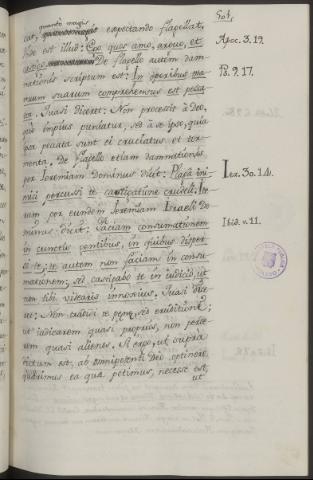 501.
cat, quanto magis expectando flagellat,
Hinc est illud: Ego quos amo, arguo, et
castigo. De flagello autem dam-
nationis scriptum est: In operibus ma-
nuum suarum comprehensus est pecca-
tor. Quasi diceret: Non processit à Deo,
quo impius punitur, sed à se ipso, quia
per peccata sunt ei cruciatus et tor-
menta. De flagello etiam damnationis
per Jeremiam Dominus dicit: Plaga ini-
mici percussi te castigatione crudeli. Ite-
rum per eundem Jeremiam Israeli Do-
minus dicit: Faciam consumationem
in cunctis gentibus, in quibus disper-
si te; te autem non faciam in consu-
mationem; sed castigabo te in judicio, ut
non tibi videaris innoxius. Quasi dice-
ret: Non crucio te poena, sed eruditione;
ut judicarem quasi proprios, non perde-
rem quasi alienos. Si ergo, ut supra
dictum est, ab omnipotenti Deo optinere
quaerimus ea quae petimus, necesse est,
ut
Apoc. 3. 19.
Ps. 9. 17.
Jer. 30. 14.
Ibid. v. 11.